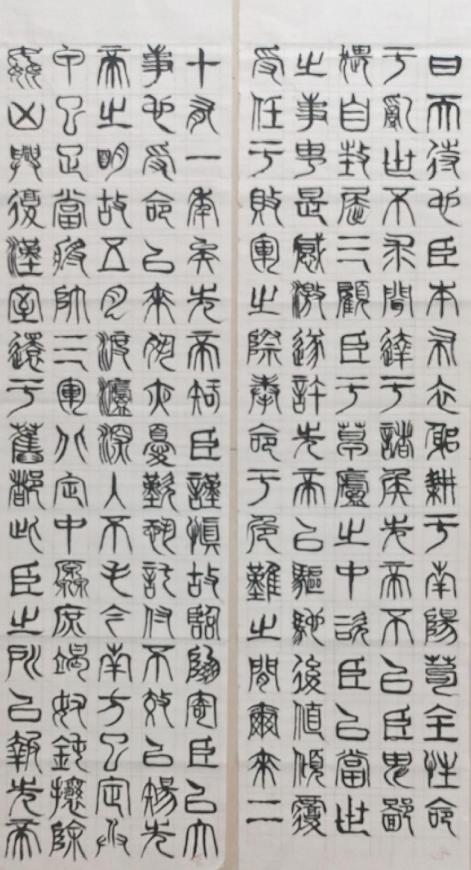 日而待也臣本布衣躬耕于南陽苟全性命
于亂世不求聞達于諸侯先帝不以臣卑鄙
猥自枉屈三顧臣于草廬之中諮臣以當世
之事由是感激遂許先帝以驅馳後值傾覆
受任于敗軍之際奉命于危難之間爾來二
十有一年矣先帝知臣謹慎故臨崩寄臣以大
事也受命以來夙夜憂歎恐託付不效以傷先
帝之明故五月渡瀘深入不毛今南方已定兵
甲已足當獎帥三軍北定中原庶竭駑鈍攘除
姦凶興復漢室還于舊都此臣之所以報先帝